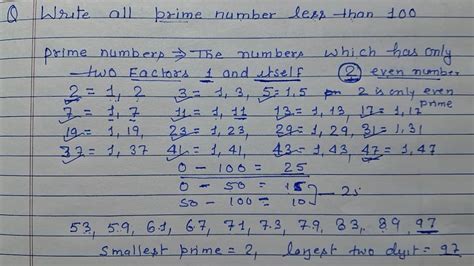 Q Write all prime number less than 100
prime numbers ⇒ The numbers which has only
two Factors 1 and itself 2 even number
2 = 1, 2 3 = 1, 3, 5 = 1,5 2 is only even
prime
7 = 1, 7 11 = 1, 11 13 = 1, 13, 17 = 1, 17
19 = 1, 19, 23 = 1, 23, 29 = 1, 29, 31 = 1, 31
37 = 1, 37 41 = 1, 41 43 = 1, 43 47 = 1, 47
0 - 100 = 25
0 - 50 = 15
50 - 100 = 10 25
53, 59, 61, 67, 71, 73, 79, 83, 89, 97
smallest prime = 2, largest two dygit = 97